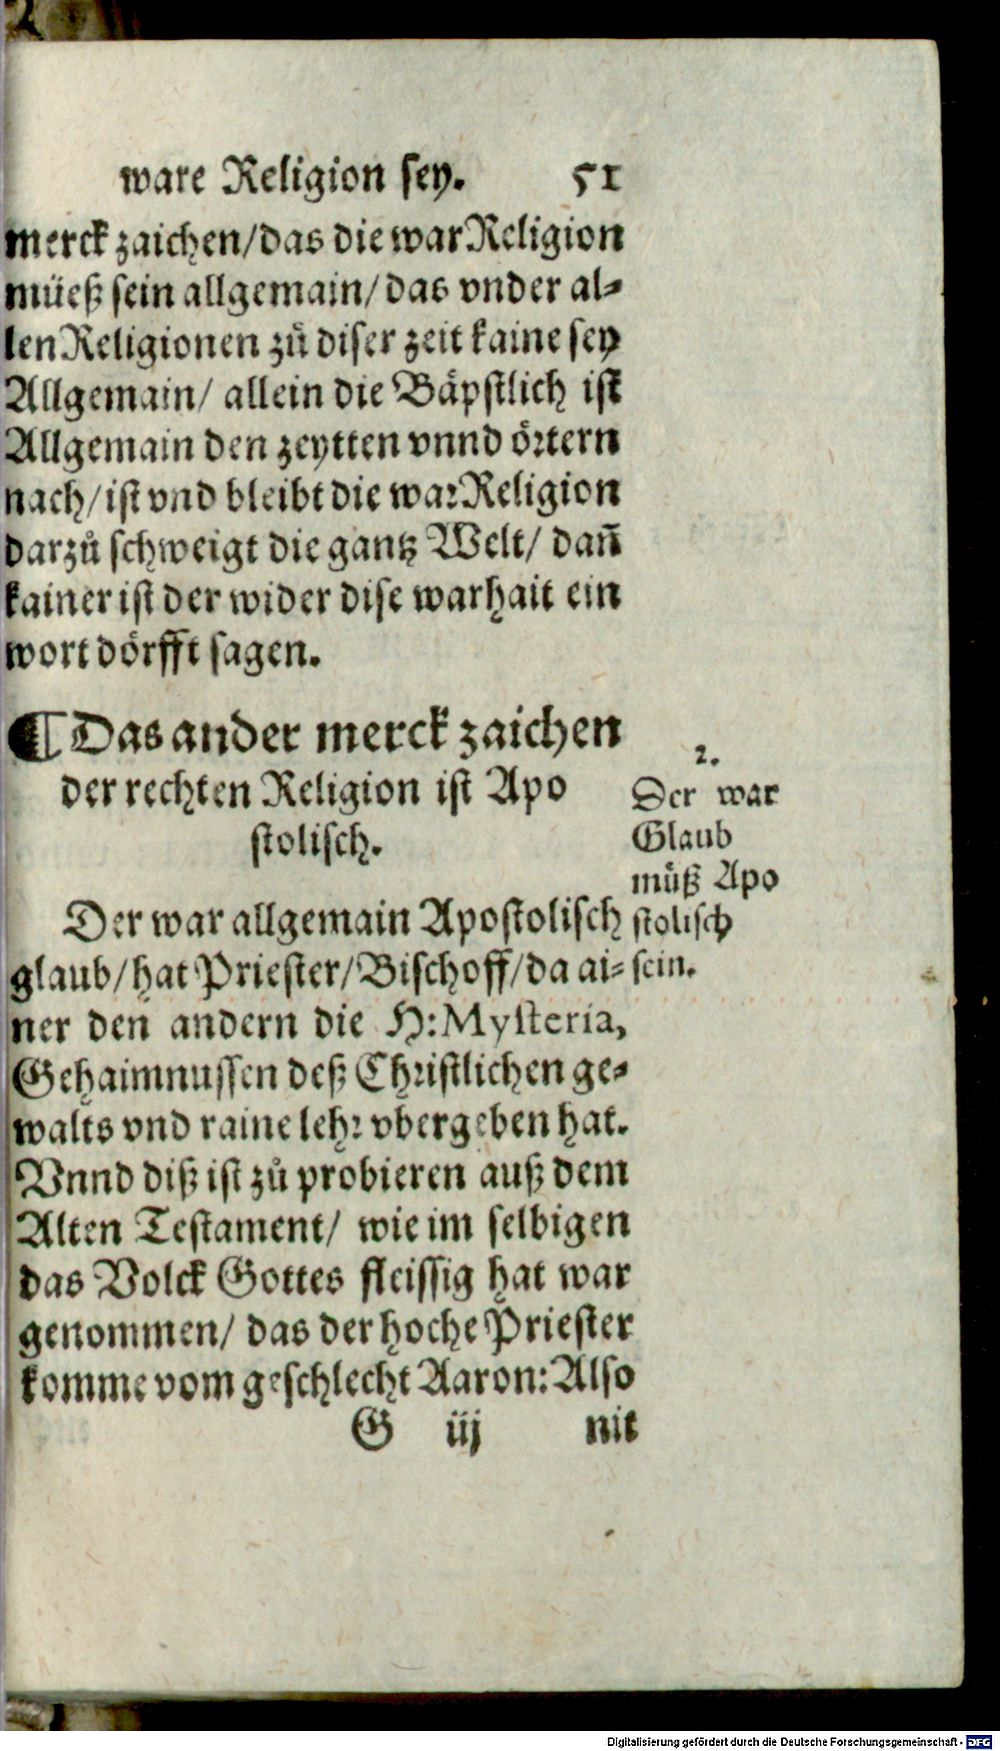 ware Religion sey. 51
merck zaichen/das die war Religion
müeß sein allgemain/das vnder al-
len Religionen zů diser zeit kaine sey
Allgemain/ allein die Bäpstlich ist
Allgemain den zeytten vnnd örtern
nach/ist vnd bleibt die war Religion
darzů schweigt die gantz Welt/ dañ
kainer ist der wider dise warhait ein
wort dörfft sagen.
¶ Das ander merck zaichen
der rechten Religion ist Apo
stolisch.
2.
Der war
Glaub
můß Apo
stolisch
sein.
Der war allgemain Apostolisch
glaub/hat Priester/Bischoff/da ai-
ner den andern die H:Mysteria,
Gehaimnussen deß Christlichen ge-
walts vnd raine lehr vbergeben hat.
Vnnd diß ist zů probieren auß dem
Alten Testament/ wie im selbigen
das Volck Gottes fleissig hat war
genommen/ das der hoche Priester
komme vom geschlecht Aaron:Also
G iij nit
Digitalisierung gefördert durch die Deutsche Forschungsgemeinschaft - DFG